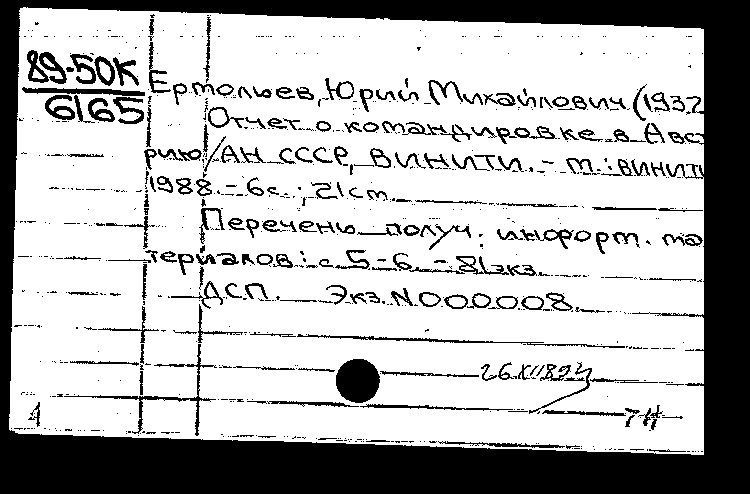 89-50К
6165
Ертольев, Юрий Михайлович (1932
Отчет о командировке в Авст
рию/АН СССР, ВИНИТИ. - М.: ВИНИТИ
1988. - 6с.; 21см.
Перечень получ. информ. ма
териалов: с. 5-6. - 81экз.
ДСП. Экз. N000008.
26.XII892